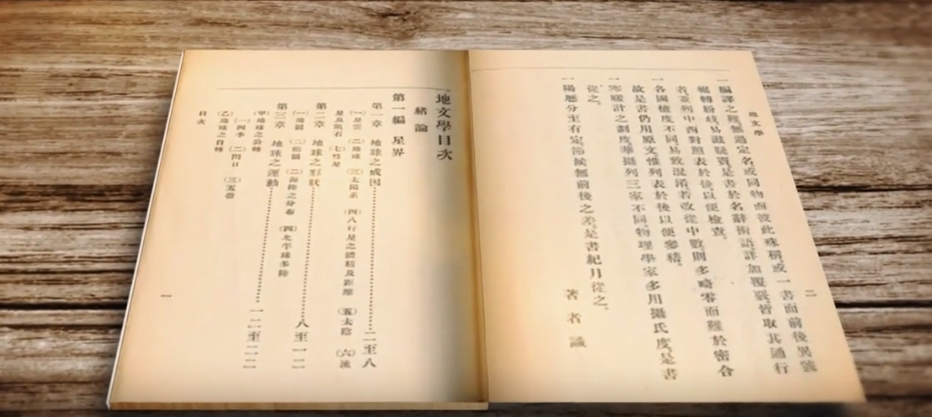 地文學
二
一編譯之難無過定名或同物而彼此殊稱或一書而前後異號
輾轉紛歧易滋疑竇是書於名辭術語詳加覆覈皆取其通行
者並列中西對照表於後以便檢查
一各國權度不同易致混淆若改從中數則多畸零而難於密合
故是書仍用原文惟列表於後以便參稽
一寒暖計之制度舉攝列三家不同物理學家多用攝氏度是書
從之
一陽曆分至有定節候無前後之差是書紀月從之
著者識
地文學目次
緒論
第一編 星界
第一章 地球之成因…二至八
(一)星雲 (二)地球 (三)太陽系 (四)八行星之體積及距離 (五)太陰 (六)流
星及隕石 (七)彗星
第二章 地球之形狀…八至一二
(一)地圓 (二)楕圓 (三)海陸之分布 (四)北半球多陸
第三章 地球之運動…一二至二二
(甲)地球之公轉
(一)四季 (二)閏日 (三)五帶
(乙)地球之自轉
目次
一